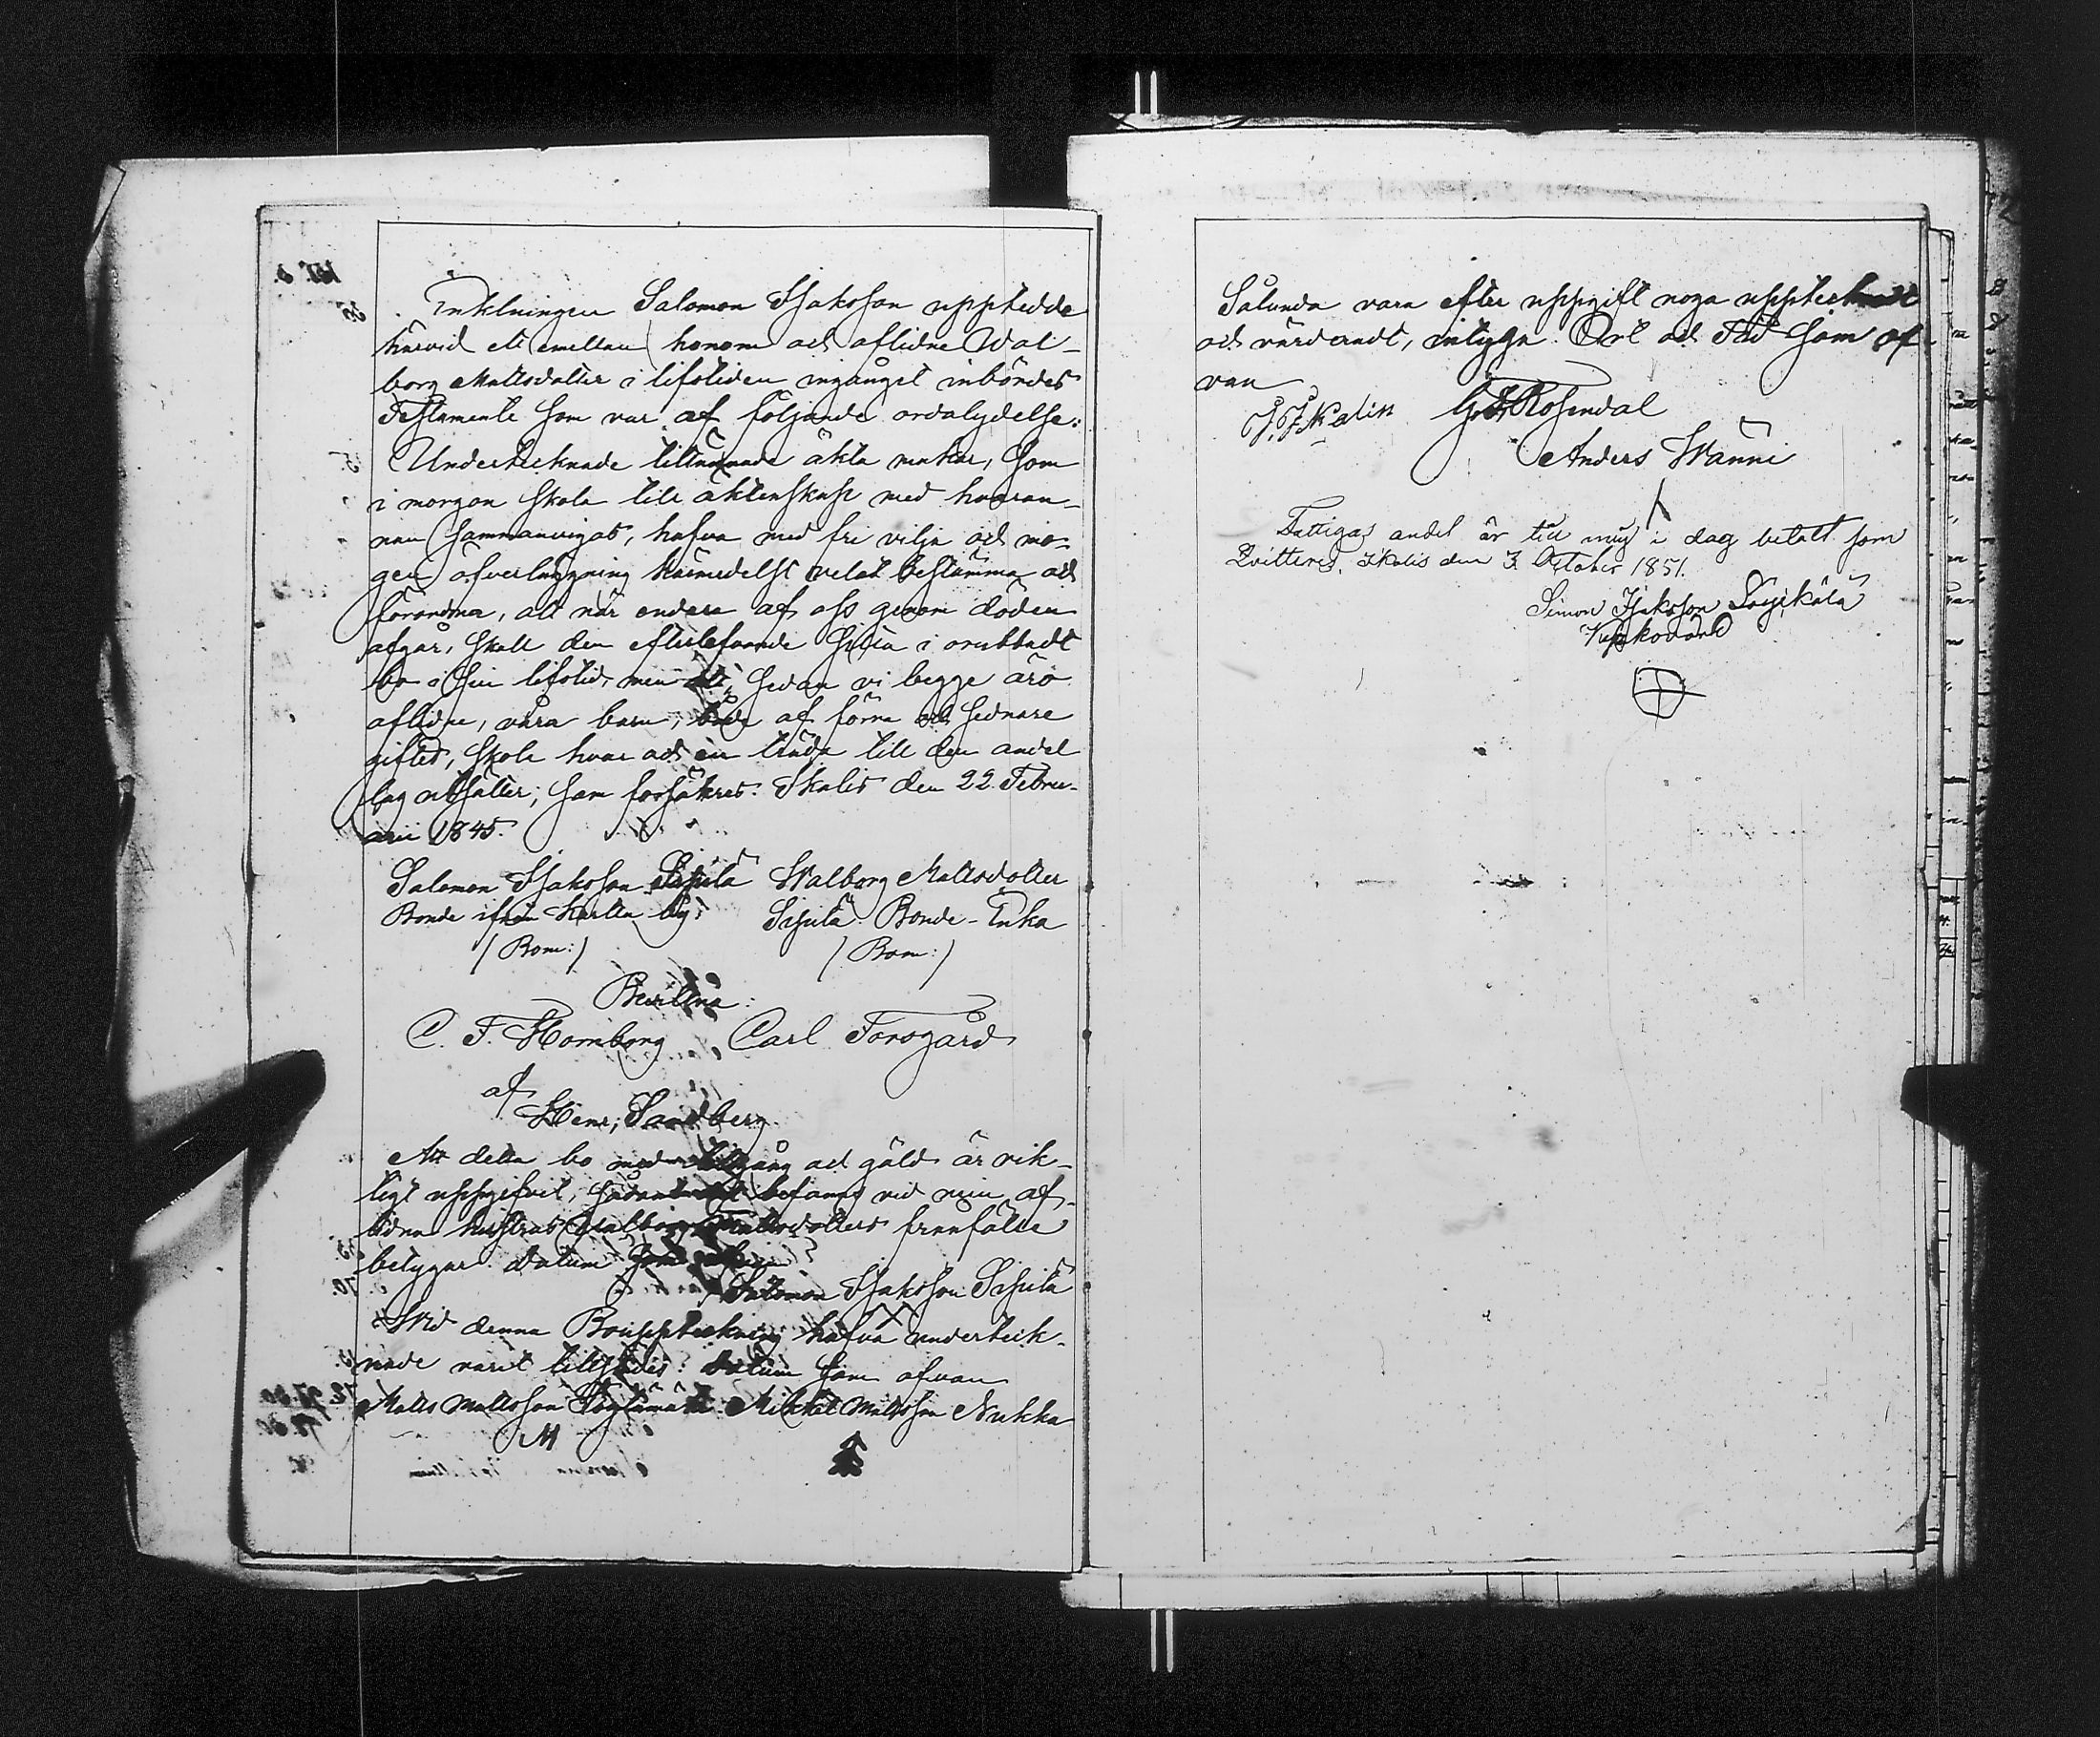 Enklningen Salomon Isaksson upptedde
härvid ett emellan honom och aflidne Wal-
borg Mattsdotter i lifstiden ingånget inbördes
Testamente som var af följande ordalydelse:
Undertecknade tillämnade äkta makar, som
i morgon skola till äktenskap med hvaran-
nan sammanvigas, hafva med fri vilja och mo-
gen öfverläggning härmedelst velat bestämma och
förordna, att när endera af oss genom döden
afgår, skall den efterlefvande sitta i orubbadt
bo i sin lifstid, men att, sedan vi begge äro
aflidne, våra barn, både af förra och sednare
giftet, skola hvar och en träda till den andel
lag utsätter; som försäkras. Ikalis den 22 Febru-
arii 1845.
Salomon Isaksson Sipilä Walborg Mattsdotter
Bonde ifrån Kartu by Sipilä Bonde-Enka
(Bom:) (Bom:)
Bevittna:
C. F. Homborg Carl Forsgård
af
Henr, Sandberg.
Att detta bo med tillgång och gäld är rik-
tigt uppgifvit, sådant det befanns vid min af-
lidna hustrus Walborg Mattsdotters frånfälle
betygar. Datum som
Salomon Isaksson Sipilä
Wid denna Bouppteckning hafva underteck-
nade varit tillstädes. Datum som ofvan
Matts Mattsson Mikkel Mattsson Nukka
M
Sålunda vara efter uppgift noga upptecknadt
och värderadt, intyga. Ort och Tid som of-
van
J. J. Kalin G. F. Rosendal
Anders Wänni
Fattigas andel är till mig i dag betalt som
Qvitteras, Ikalis den 3 October 1851.
Simon Isaksson
Kyrkovärd